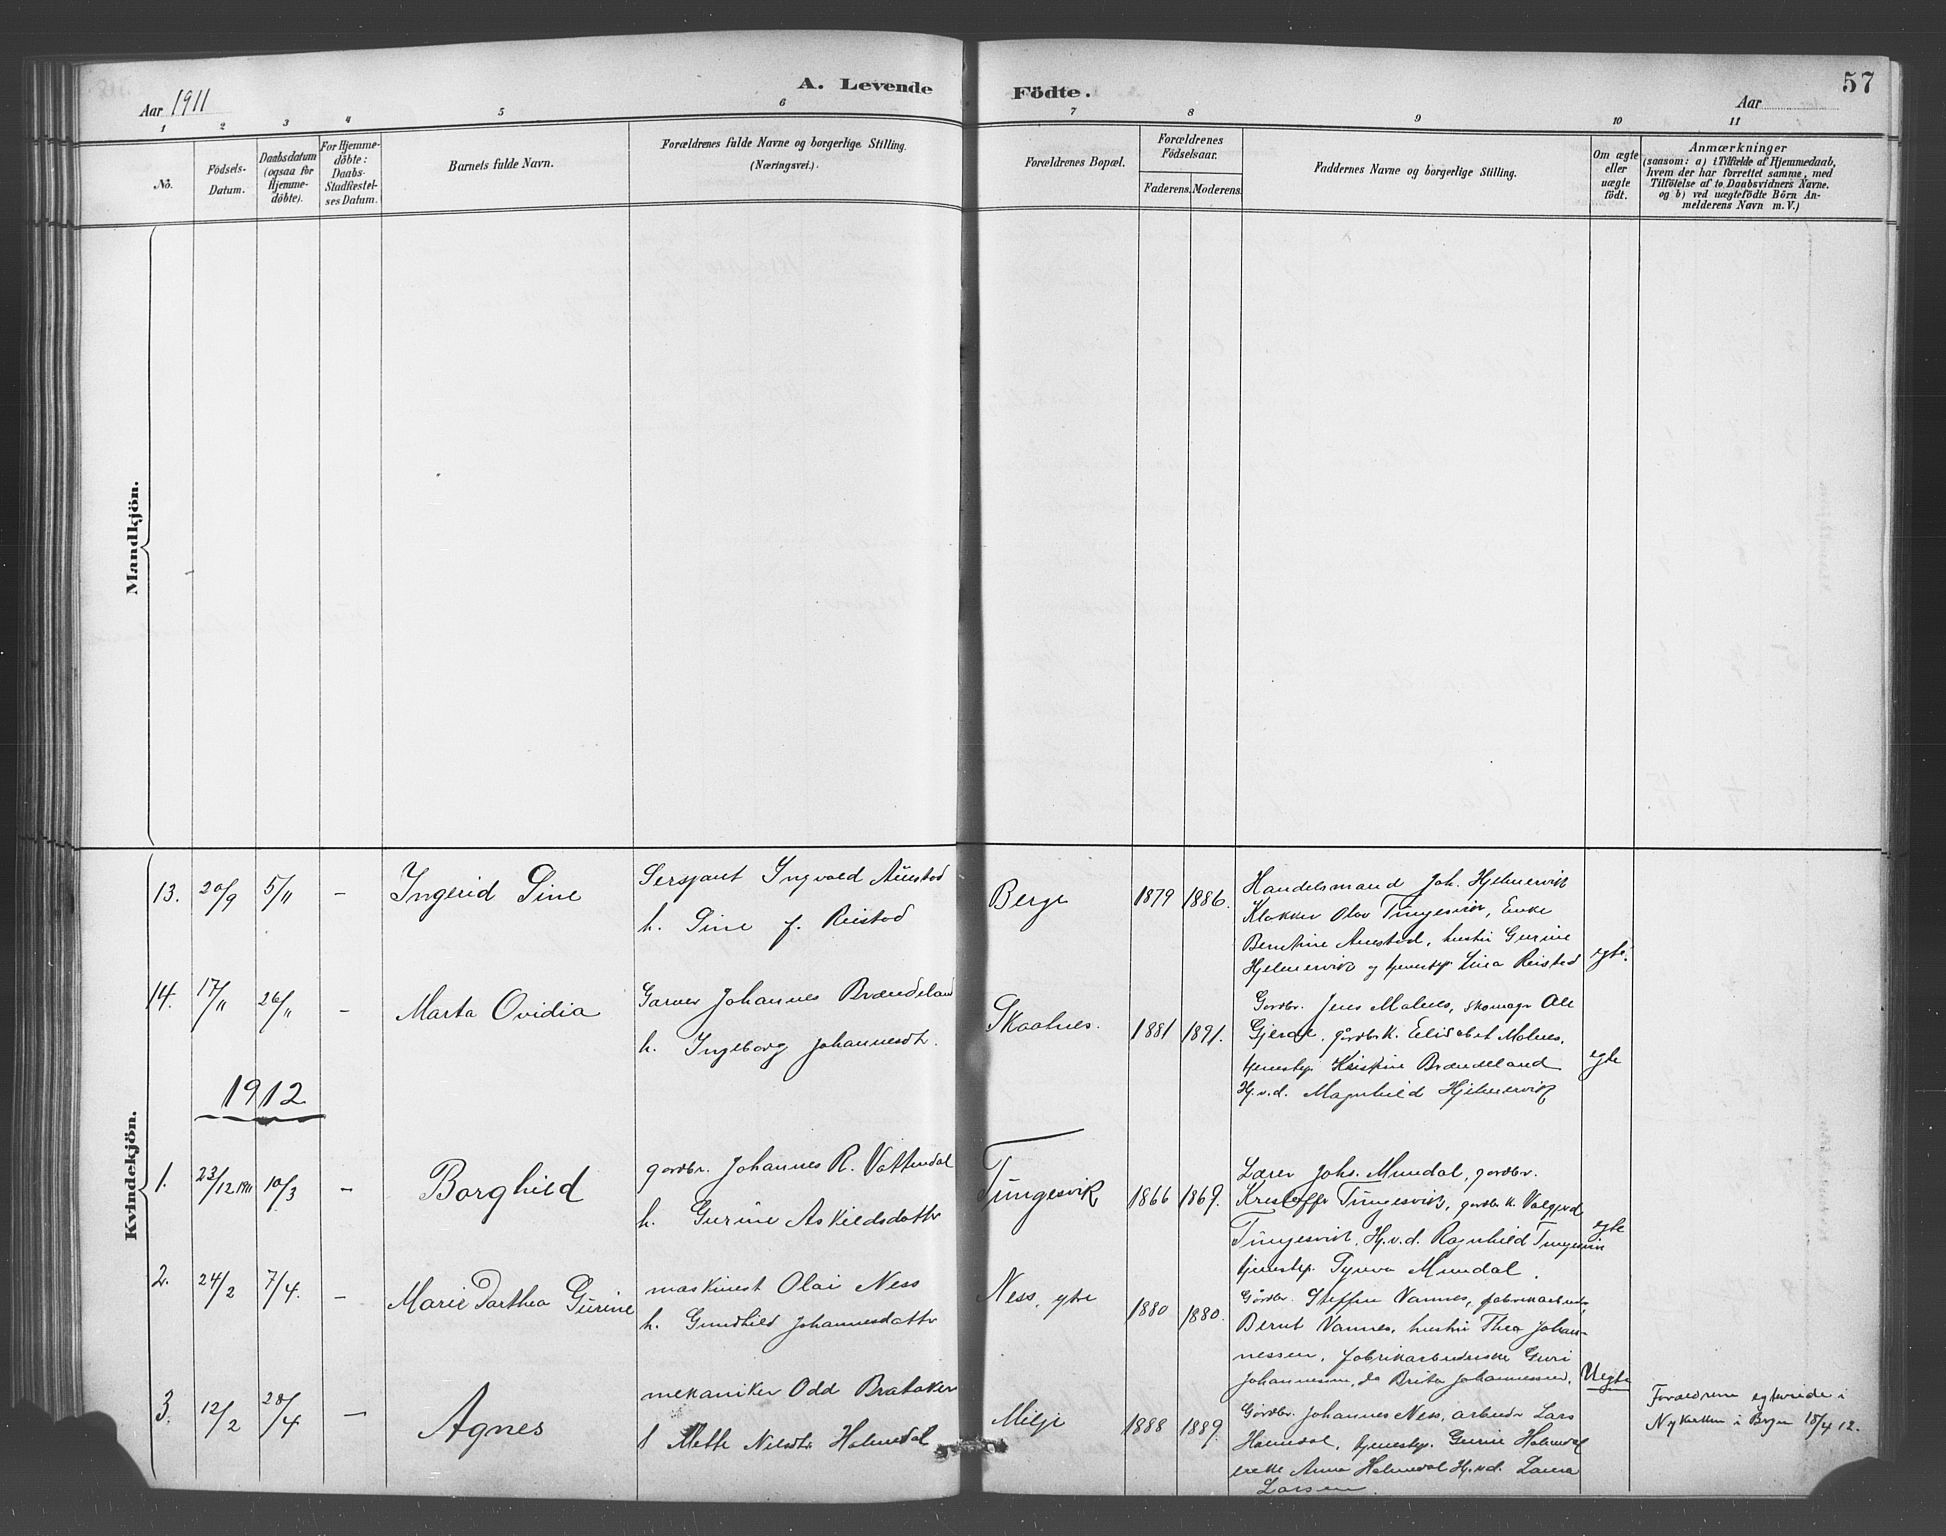 57
A. Levende Födte.
Aar 1911
Aar
1 2 3 4 5 6 7 8 9 10 11
No.
Födsels-Datum.
Daabsdatum (ogsaa for Hjemme-döbte).
For Hjemme-döbte: Daabs-Stadfæstel-ses Datum.
Barnets fulde Navn.
Forældrenes fulde Navne og borgerlige Stilling.
(Næringsvei.)
Forældrenes Bopæl.
Forældrenes Födselsaar.
Faderens. Moderens.
Faddernes Navne og borgerlige Stilling.
Om ægte eller uægte födt.
Anmærkninger
(saasom: a) i Tilfælde af Hjemmedaab,
hvem der har forrettet samme, med
Tilföielse af to Daabsvidners Navne.
og b) ved uægtefödte Börn An-
melderens Navn m. V.)
Mandkjön.
Kvindekjön.
13. 20/9 5/11 – Ingerid Sine
Sersjant Ingvald Auestad
h. Sine f. Reistad
Berge 1879 1886.
Handelsmand Joh. Hjelmervik
Klokker Olav Tungesvik, Enke
Berntine Auestad, hustru Gurine
Hjelmervik og tjenestep. Lina Reistad
egte.
14. 17/11 26/11 – Marta Ovidia
Garver Johannes Brændeland
h. Ingeborg Johannesdt.
Skaalnes. 1881 1891.
Gardbr. Jens Malnes, skomager Ole
Gjerde, gårdbr.k. Elisabet Malnes,
tjenestep. Kristine Brændeland
Hj.v.d. Magnhild Hjelmervik
egte
1912
1. 23/12 1911 10/3 – Borghild
gardbr. Johannes R. Vattendal
h. Gurine Askildsdattr
Tungesvik 1866 1869.
Lærer Johs. Mundal, gardbr.
Kristoffr Tungesvik, gardbr.k. Valgjerd
Tungesvik, Hj.v.d. Ragnhild Tungesvik
tjenestep. Synva Mundal.
egte
2. 24/2 7/4. – Marie Darthea Gurine
maskinest Olai Ness
h. Gundhild Johannesdattr
Ness, ytre 1880 1880.
Gårdbr. Steffen Vannes, fabrikarbeidr,
Bernt Vannes, hustru Thea Johan-
nessen, fabrikarbeiderske Guri
Johannessen, do Brita Johannessen,
3. 12/2 28/4 – Agnes
mekaniker Odd Brataker
f Mette Nilsdtr Halmedal
Milje 1888 1889.
Gårdbr. Johannes Ness, arbeidr Lars
Halmedal, tjenestep. Gurine Halmedal
enke Anna Halmedal Hj.v.d. Laura
Larsen.
Uegte
Forældrene egteviede i
Nykirken i Bergen 18/4 12.